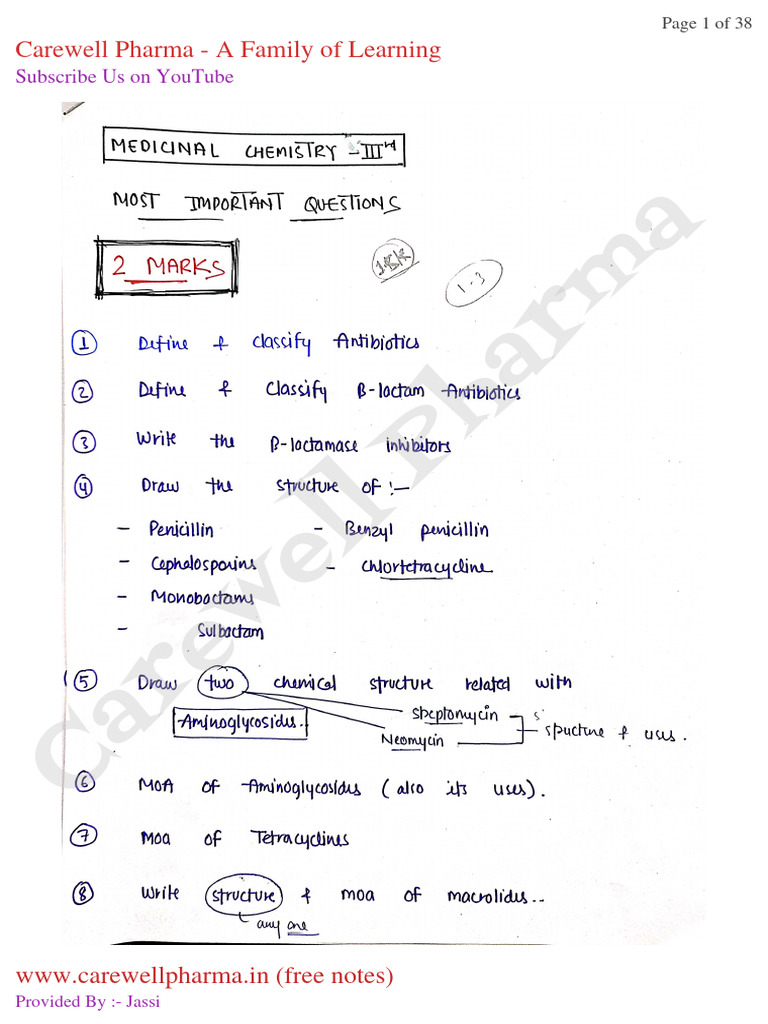 Page 1 of 38
Carewell Pharma - A Family of Learning
Subscribe Us on YouTube
MEDICINAL CHEMISTRY - III rd
MOST IMPORTANT QUESTIONS
2 MARKS
1.3
① Define & classify Antibiotics
② Define & Classify β-lactam Antibiotics
③ Write the β-lactamase inhibitors
④ Draw the structure of :-
- Penicillin - Benzyl penicillin
- Cephalosporins - chlortetracycline
- Monobactams
- Sulbactam
⑤ Draw two chemical structure related with
Aminoglycosides.. Streptomycin
Neomycin structure & uses.
⑥ MOA of Aminoglycosides (also its uses).
⑦ Moa of Tetracyclines
⑧ Write structure & moa of macrolides..
any one
Carewell Pharma
www.carewellpharma.in (free notes)
Provided By :- Jassi